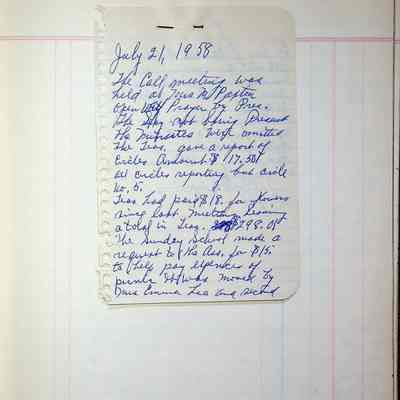 July 21, 1958
The Call meeting was
held at Mrs M
open Prayer by Pres.
The not being Present
the Minutes were omitted
The Treas. gave a report of
Circles Amount $117.50
all circles reporting but circle
No. 5.
Treas had paid $18. for
since last meeting leaving
a total in Treas. 298.
The Sunday School made a
request to the Ass. for $15
to help pay expences of
picnic It was moved by
Emma and second